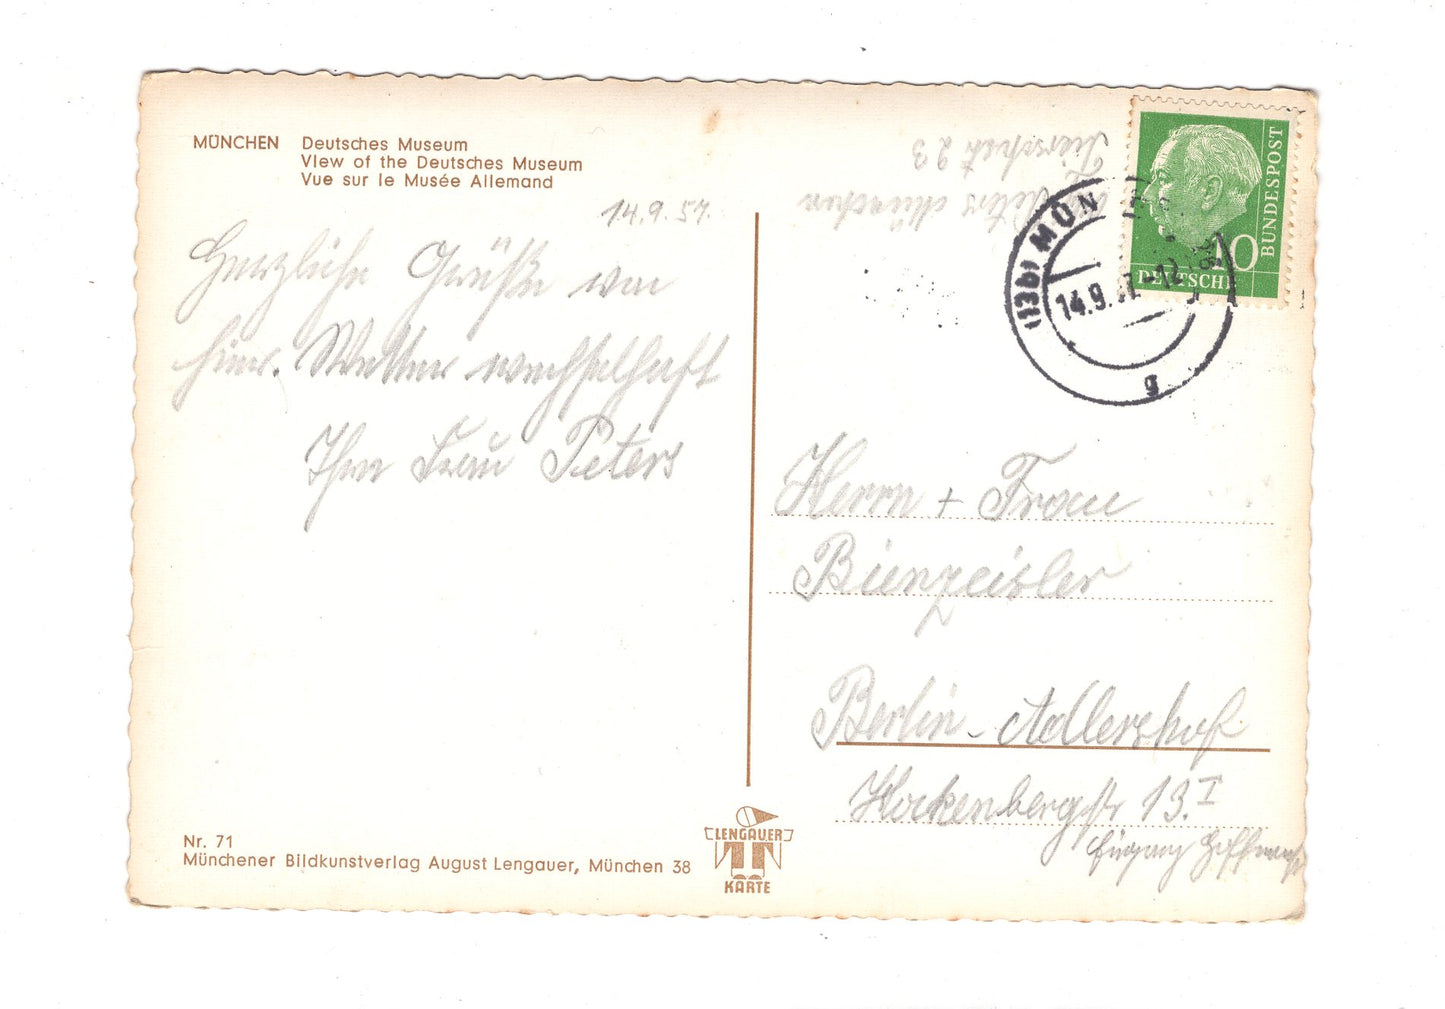 MÜNCHEN Deutsches Museum
View of the Deutsches Museum
Vue sur le Musée Allemand
14.9.57.
Herzliche Grüße von
hier. Wetter wechselhaft
Ihre Frau Peters
Nr. 71
Münchener Bildkunstverlag August Lengauer, München 38
LENGAUER
KARTE
Peters München
23
DEUTSCHE
BUNDESPOST
10
(13b) MÜN
14.9. 7-12
g
Herrn + Frau
Bienzeisler
Berlin-Adlershof
Hackenbergstr 13.I
Eingang Hoffmannstr